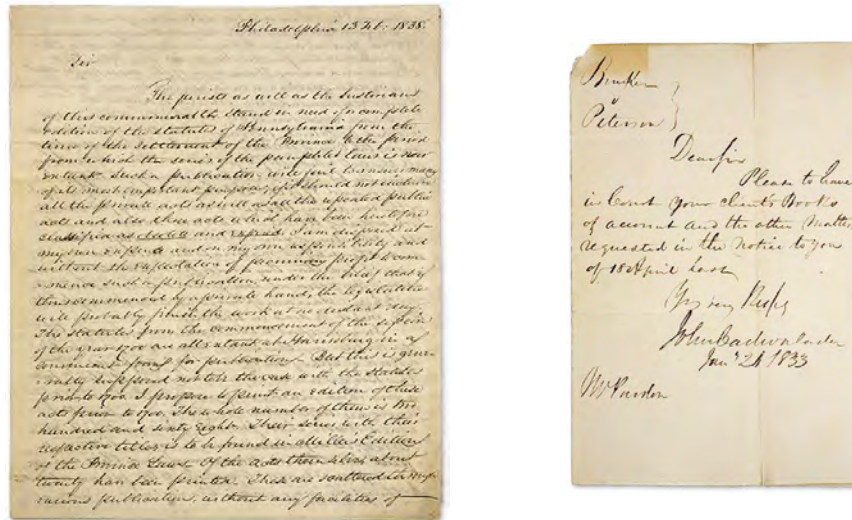 Philadelphia 13 Feb: 1838.
Sir
The jurists as well as the historians
of this commonwealth stand in need of a complete
edition of the statutes of Pennsylvania from the
time of the settlement of the Province to the period
from which the series of the pamphlet laws is now
extant. Such a publication will fail
of its most important purposes, if it should not
all the private acts as well as all the repealed public
acts and also those acts which have been heretofore
classified as obsolete and expired. I am disposed at
my own expense and on my own responsibility and
without the expectation of pecuniary profit to com-
mence such a publication, under the belief that if
thus commenced by a private hand, the legislature
will probably finish the work at no distant day.
The statutes from the commencement of the
of the year 1700 are all extant at Harrisburg in a
convenient form for publication. But this is gene-
rally supposed not to be the case with the statutes
prior to 1700. I propose to print an edition of these
acts prior to 1700. The whole number of them is two
hundred and sixty eight. Their series with their
respective titles is to be found in Edition
of the Province Laws. Of the acts themselves about
twenty have been printed. These are scattered in
various publications, without any facilities of
Bunker
&
Peterson
Dear Sir
Please to leave
in Court your client's Books
of account and the other matters
requested in the notice to you
of 18 April last
Yrs very Respy
John Cadwalader
24 1833
Mr Purdon